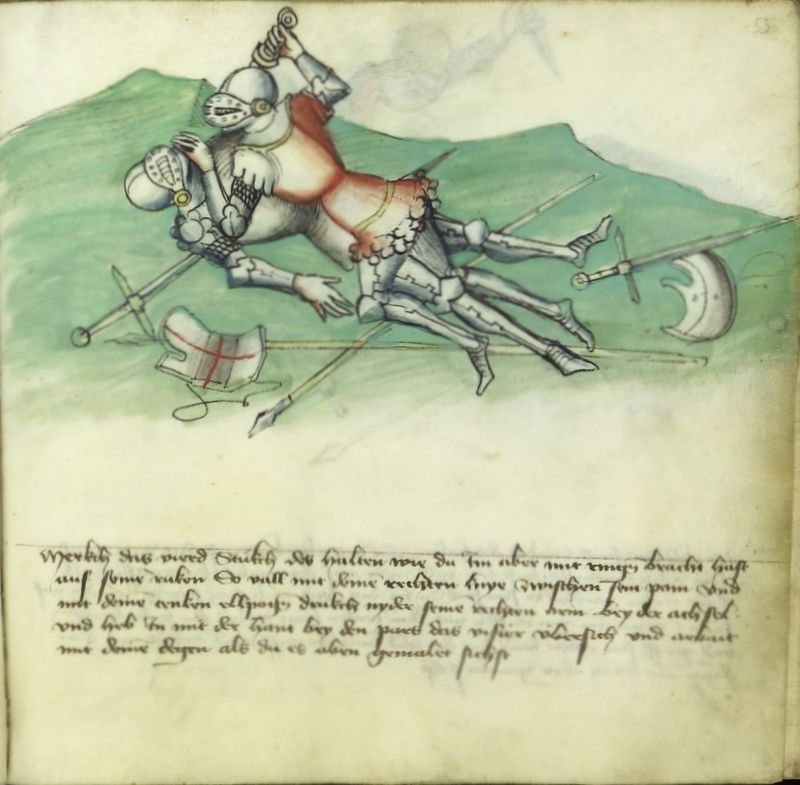 55
Merkch das vierd Stukch des halten wie du Im aber mit ringen bracht hast
auf seine ruken So vall mit deine rechten knye zwischen sein pain Vnd
mit deine tenken ellpogen drukch nyder seine rechten arm bey der achsel
vnd heb Im mit der hant bey den part das visier vbersich vnd arbait
mit deine degen als du es oben gemalet sichst